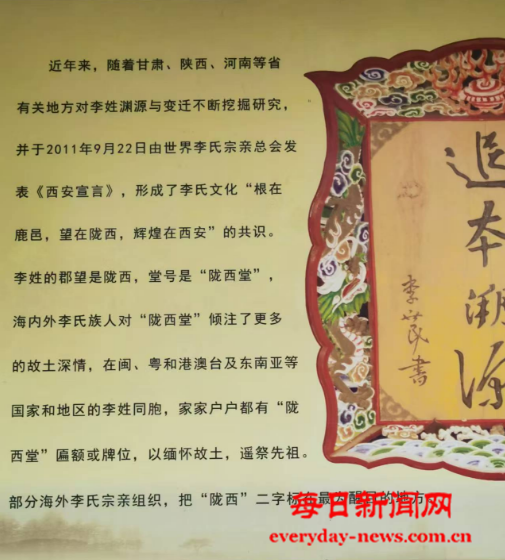 近年来，随着甘肃、陕西、河南等省
有关地方对李姓渊源与变迁不断挖掘研究，
并于2011年9月22日由世界李氏宗亲总会发
表《西安宣言》，形成了李氏文化“根在
鹿邑，望在陇西，辉煌在西安”的共识。
李姓的郡望是陇西，堂号是“陇西堂”，
海内外李氏族人对“陇西堂”倾注了更多
的故土深情，在闽、粤和港澳台及东南亚等
国家和地区的李姓同胞，家家户户都有“陇
西堂”匾额或牌位，以缅怀故土，遥祭先祖。
部分海外李氏宗亲组织，把“陇西”二字标在最为醒目的地方。
追本溯源
李世民書
每日新闻网
everyday-news.com.cn